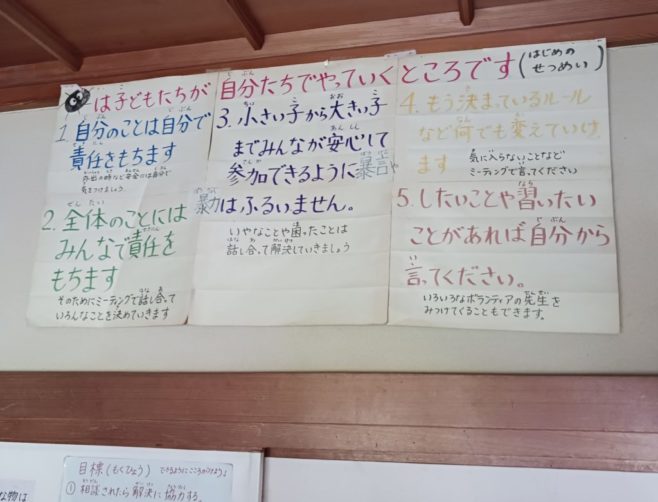 は子どもたちが自分たちでやっていくところです(はじめのせつめい)
1. 自分のことは自分で
責任をもちます
外出の時など安全には自分で
気をつけましょう
2. 全体のことには
みんなで責任を
もちます
そのためにミーティングで話し合って
いろんなことを決めていきます
3. 小さい子から大きい子
までみんなが安心して
参加できるように暴言や
暴力はふるいません。
いやなことや困ったことは
話し合って解決していきましょう
4. もう決まっているルール
など何でも変えていけ
ます
気に入らないことなど
ミーティングで言ってください
5. したいことや習いたい
ことがあれば自分から
言ってください。
いろいろなボランティアの先生を
みつけてくることもできます。
目標(もくひょう)
① 相談されたら解決に協力する。
な物は